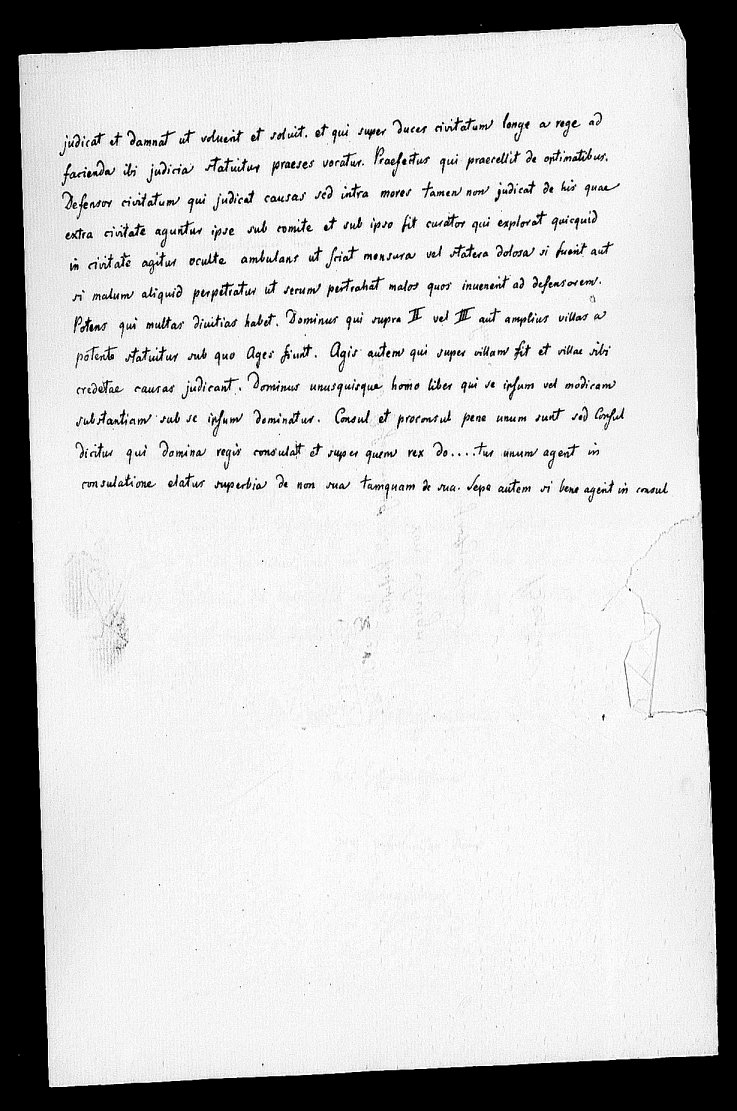 judicat et damnat ut voluerit et solvit. et qui super duces civitatum longe a rege ad
facienda ibi judicia statuitur praeses vocatur. Praefectus qui praecellit de optimatibus.
Defensor civitatum qui judicat causas sed intra mores tamen non judicat de his quae
extra civitate aguntur ipse sub comite et sub ipso fit curator qui explorat quicquid
in civitate agitur oculte ambulans ut sciat mensura vel statera dolosa si fuerit aut
si malum aliquid perpetratur ut secum pertrahat malos quos invenerit ad defensorem.
Potens qui multas divitias habet. Dominus qui supra II vel III aut amplius villas a
potente statuitur sub quo Ages fiunt. Agis autem qui super villam fit et villae sibi
credetae causas judicant. Dominus unusquisque homo liber qui se ipsum vel modicam
substantiam sub se ipsum dominatur. Consul et proconsul pene unum sunt sed Consul
dicitur qui domina regis consulat et super quem rex do....tur unum agent in
consulatione elatus superbia de non sua tamquam de sua. Sepe autem si bene agerit in consul